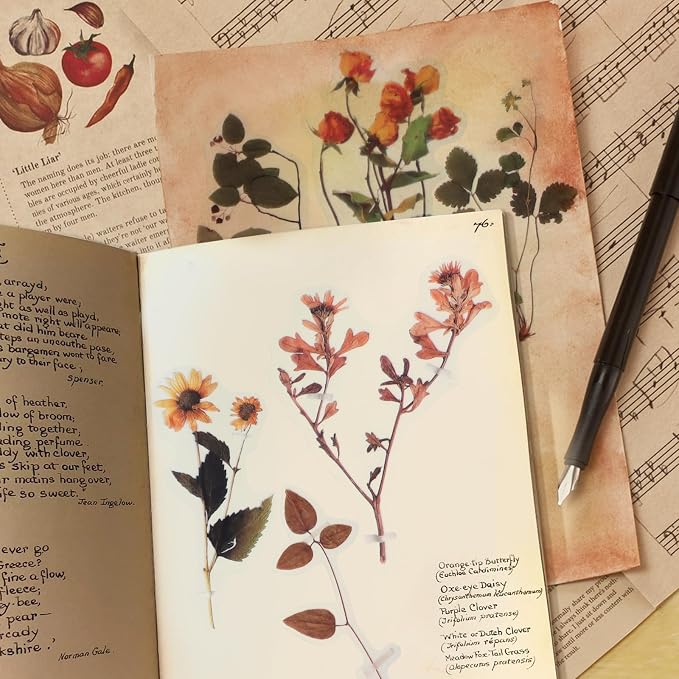 'Little Liar'
The naming does its job: there are mo
women here than men. At least three
bles are occupied by cheerful ladie co
nies of various ages, which certainly h
the atmosphere. The kitchen, thou
by four men.
waiters refuse to ta
they're not 'our wa
waiter emer
76.
arrayd,
a player were;
ght as well as playd,
mote right well appeare;
at did him beare
steps an uncouthe pase,
bargemen wont to fare
ry to their face;
Spenser.
of heather,
low of broom;
ling together,
ading perfume.
ddy with clover,
s skip at our feet,
r matins hang over,
ife so sweet.'
Jean Ingelow.
ever go
Greece?
fine a flow,
fleece;
y-bee,
pear—
rcady
kshire.'
Norman Gale.
Orange-tip Butterfly
(Euchloë Cardimines)
Oxe-eye Daisy
(Chrysanthemum leucanthemum)
Purple Clover
(Trifolium pratensis)
White or Dutch Clover
(Trifolium repens)
Meadow Fox-Tail Grass
(Alopecurus pratensis)